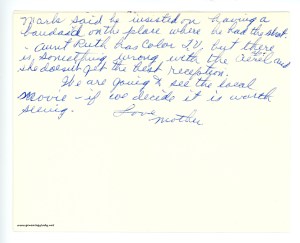 Mark said he insisted on having a
bandaid on the place where he had the shot.
- Aunt Ruth has Color T.V. but there
is something wrong with the aerial and
she doesn't get the best reception.
We are going to see the local
movie - if we decide it is worth
seeing.
Love,
Mother